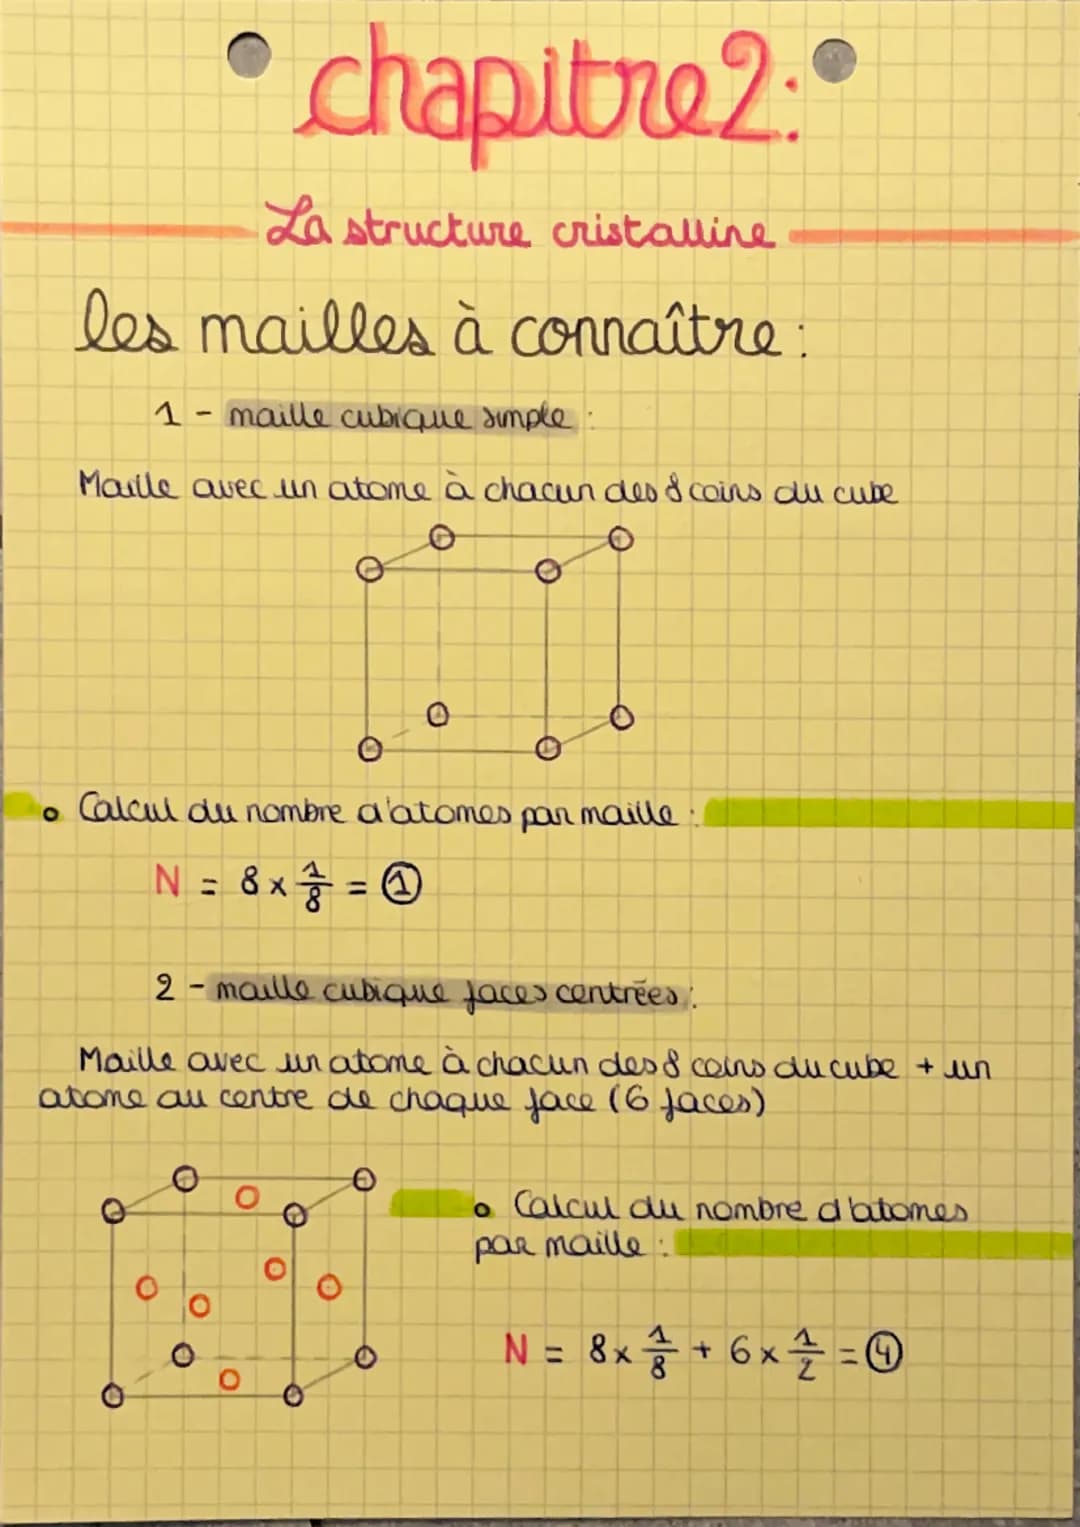 chapitre 2:
La structure cristalline
les mailles à connaître :
1 - maille cubique simple :
Maille avec un atome à chacun des 8 coins du cube
o Calcul du nombre d'atomes par maille :
N = 8 x 1/8 = 1
2 - maille cubique faces centrées :
Maille avec un atome à chacun des 8 coins du cube + un
atome au centre de chaque face (6 faces)
o Calcul du nombre d'atomes
par maille :
N = 8 x 1/8 + 6 x 1/2 = 4